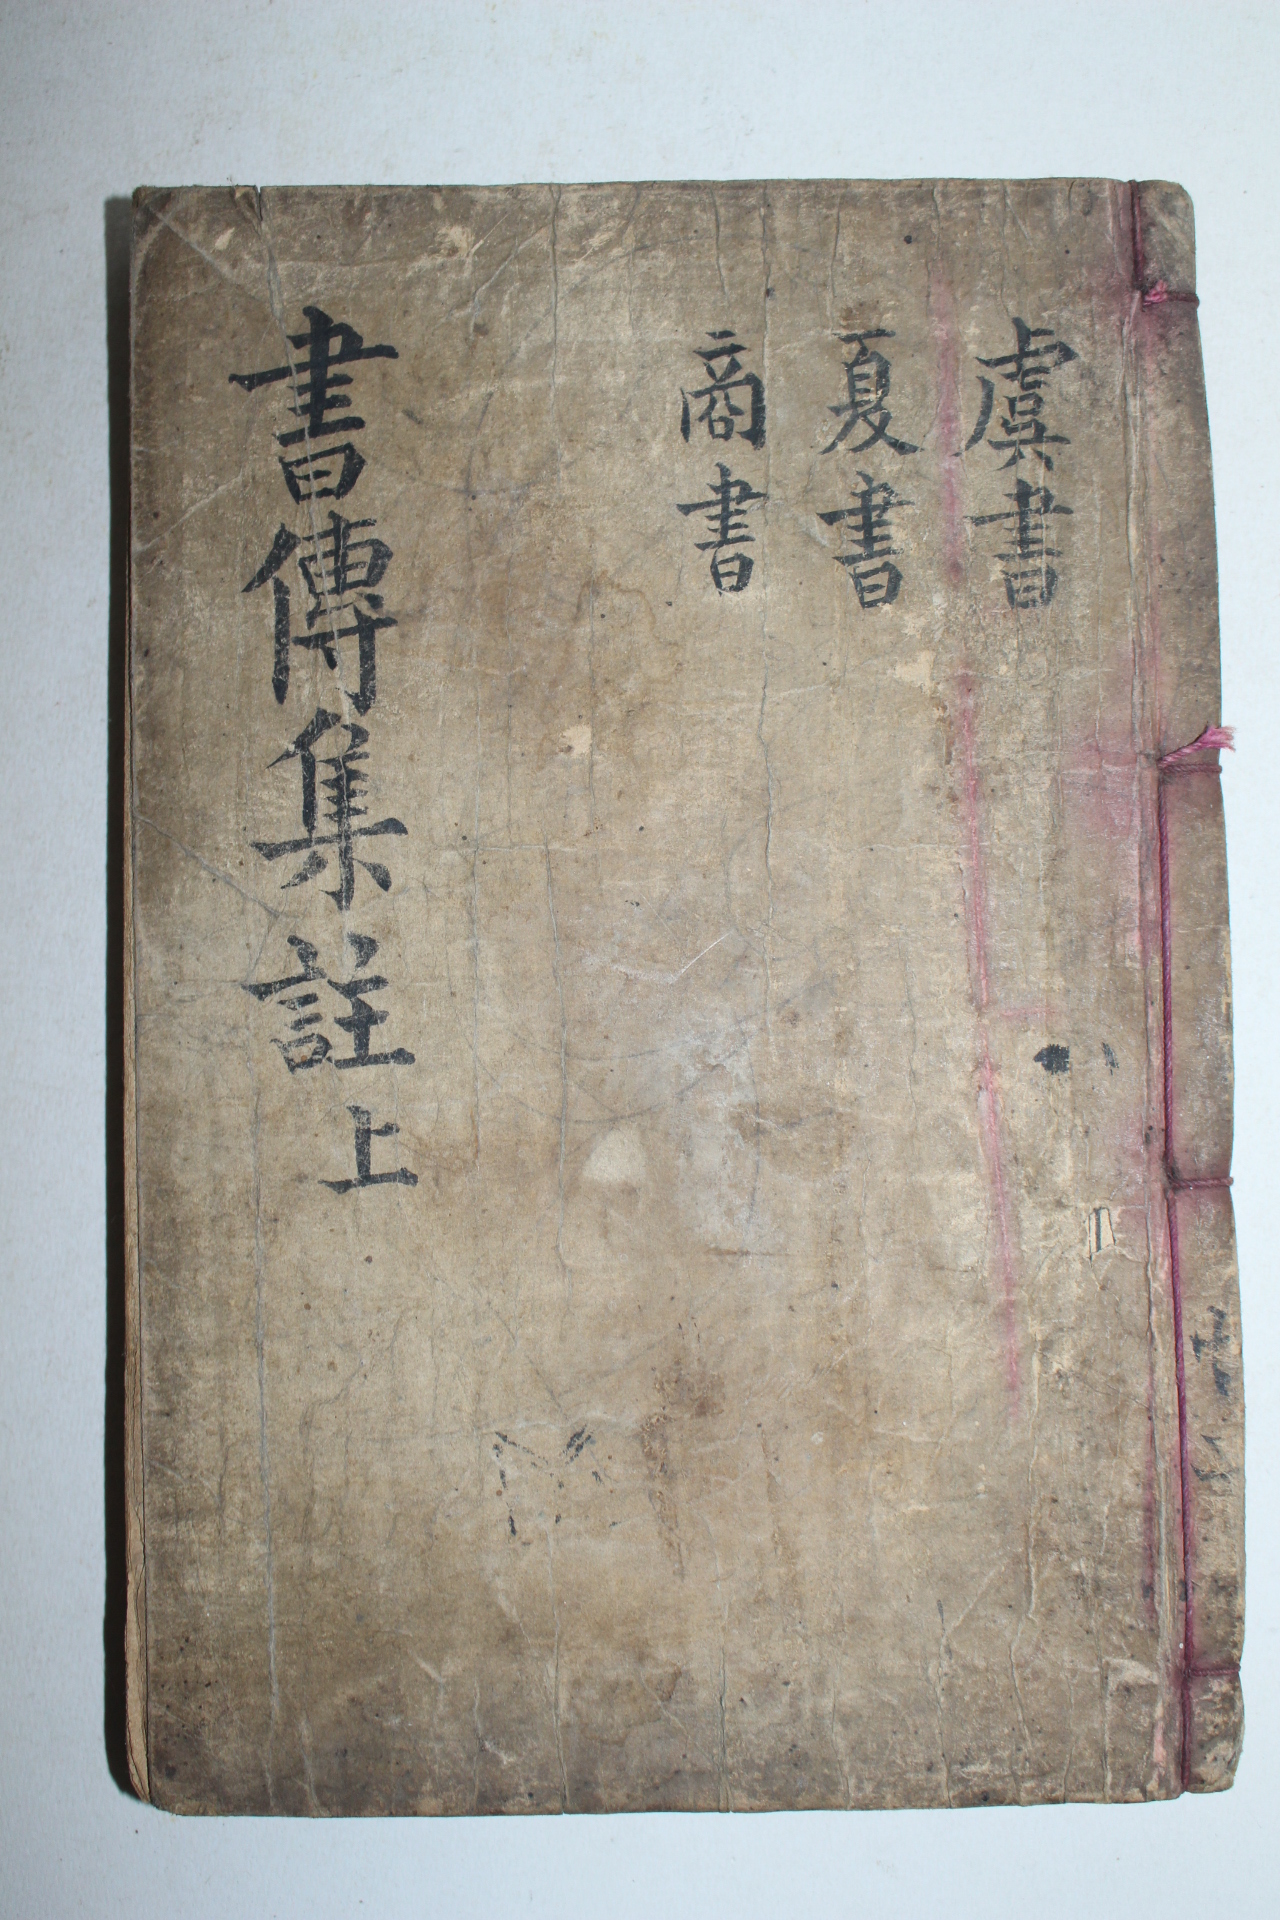 虞書
夏書
商書
書傳集註 上